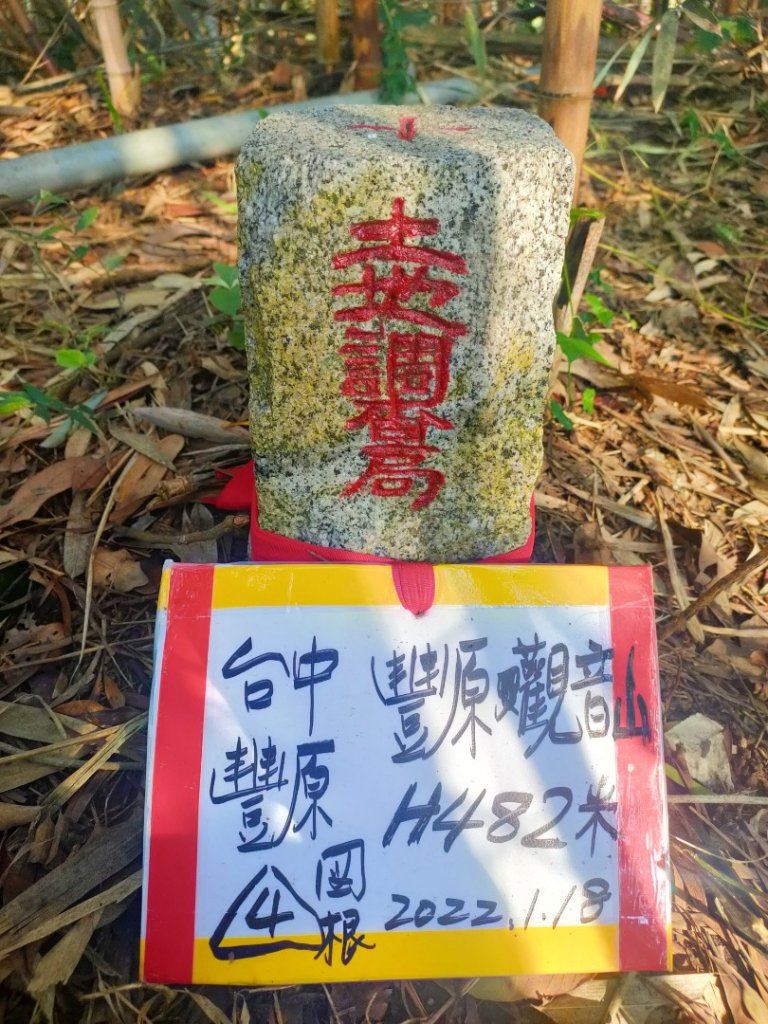 土地調查局
台中
豐原
4
国根
豐原觀音山
H482米
2022.1.18